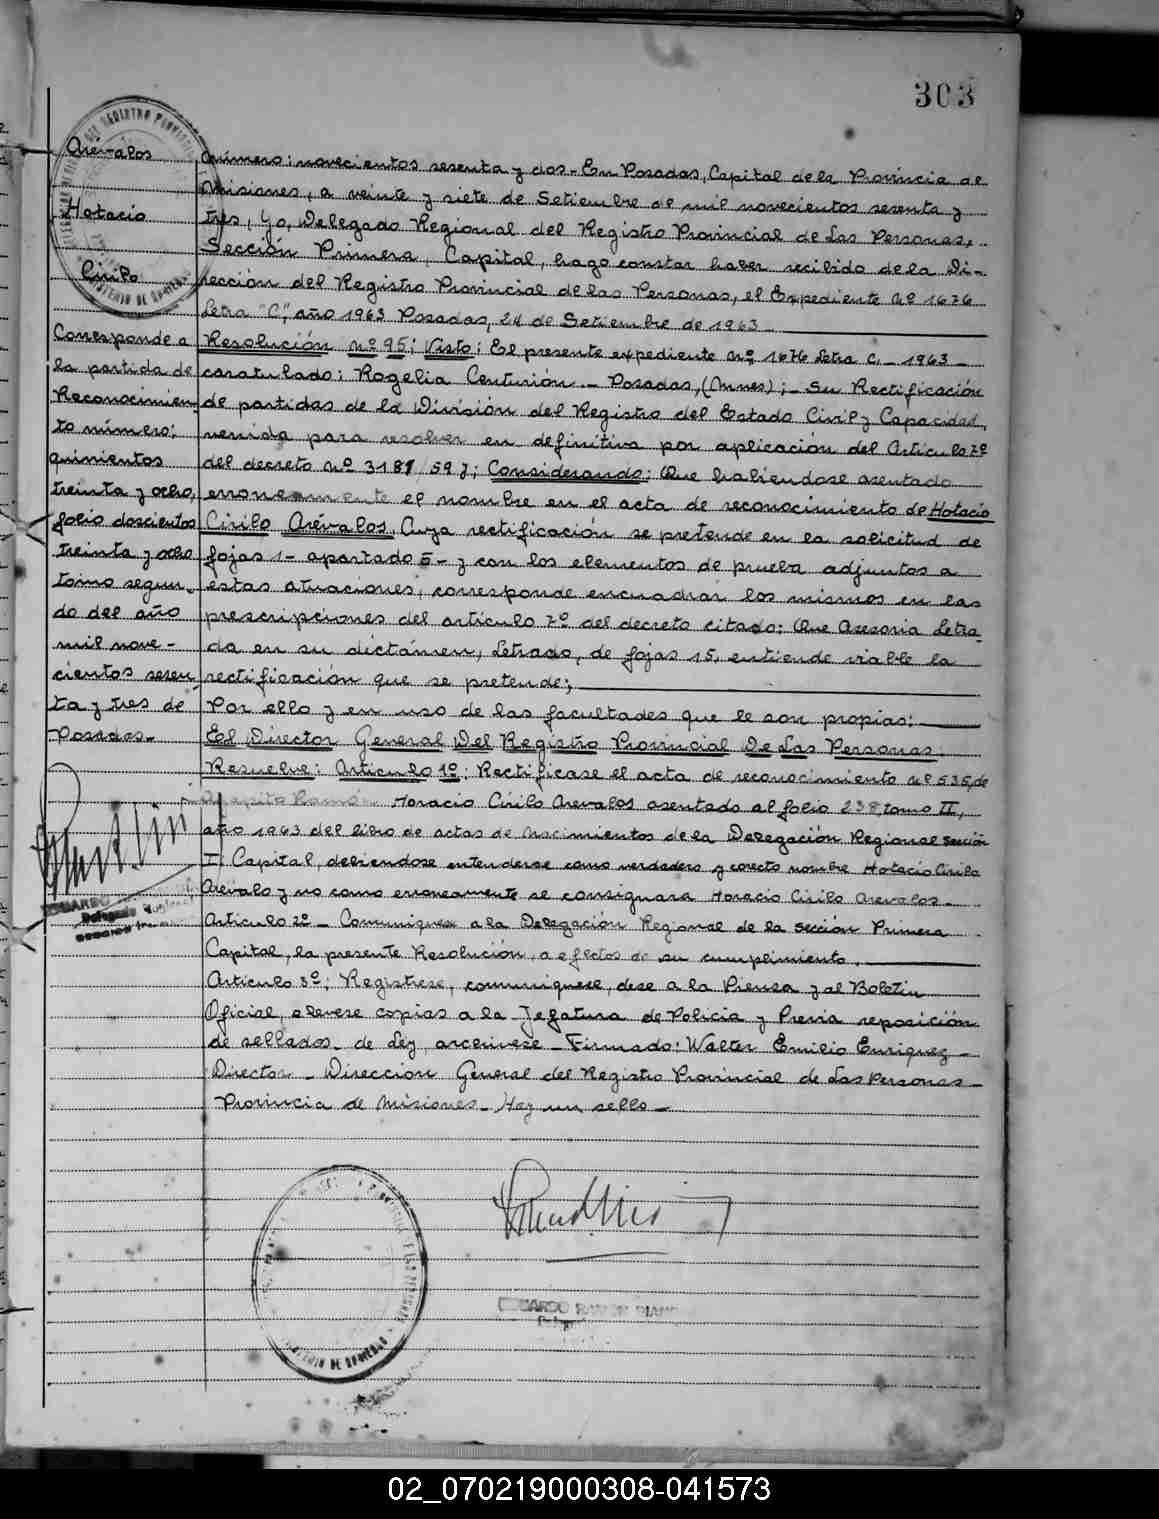 303
Arévalos
Horacio
Cirilo
Corresponde a
la partida de
Reconocimien-
to número:
quinientos
treinta y ocho,
folio doscientos
treinta y ocho
tomo segun-
do del año
mil nove-
cientos sesen-
ta y tres de
Posadas-
Número: novecientos sesenta y dos- En Posadas, Capital de la Provincia de
Misiones, a veinte y siete de Setiembre de mil novecientos sesenta y
tres, Yo, Delegado Regional del Registro Provincial de Las Personas,
Sección Primera, Capital, hago constar haber recibido de la Di-
rección del Registro Provincial de las Personas, el Expediente Nº 1676
Letra "C", año 1963 Posadas, 24 de Setiembre de 1963-
Resolución nº 95: Visto: El presente expediente nº 1676 Letra C.- 1963-
caratulado: Rogelia Centurión.- Posadas, (Mnes);- Su Rectificación
de partidas de la División del Registro del Estado Civil y Capacidad,
venida para resolver en definitiva por aplicación del Articulo 7º
del decreto nº 3181/59 y; Considerando: Que habiendose asentado
erroneamente el nombre en el acta de reconocimiento de Hotacio
Cirilo Arévalos, Cuya rectificación se pretende en la solicitud de
fojas 1- apartado 5- y con los elementos de prueba adjuntos a
estas atuaciones, corresponde encuadrar los mismos en las
prescripciones del artículo 7º del decreto citado: Que Asesoria Letra-
da en su dictámen, Letrado, de fojas 15, entiende viable la
rectificación que se pretende;
Por ello y en uso de las facultades que le son propias:
El Director General Del Registro Provincial De Las Personas:
Resuelve: Articulo 1º: Rectificase el acta de reconocimiento nº 535, de
Agapito Ramón Horacio Cirilo Arevalos asentado al folio 238, tomo II,
año 1963 del libro de actas de Nacimientos de la Delegación Regional Sección
I Capital, debiendose entenderse como verdadero y corecto nombre Hotacio Cirilo
Arévalo y no como erroneamente se consignara Horacio Cirilo Arevalos-
Articulo 2º- Comuniquese a la Delegación Regional de la Sección Primera
Capital, la presente Resolución, a efectos de su cumplimiento.
Articulo 3º: Registrese, comuniquese, dese a la Prensa y al Boletín
Oficial, elevese copias a la Jefatura de Policia y Previa reposición
de sellados- de Ley, archivese- Firmado: Walter Emilio Enriquez-
Director- Dirección General del Registro Provincial de Las Personas-
Provincia de Misiones- Hay un sello-
02_070219000308-041573